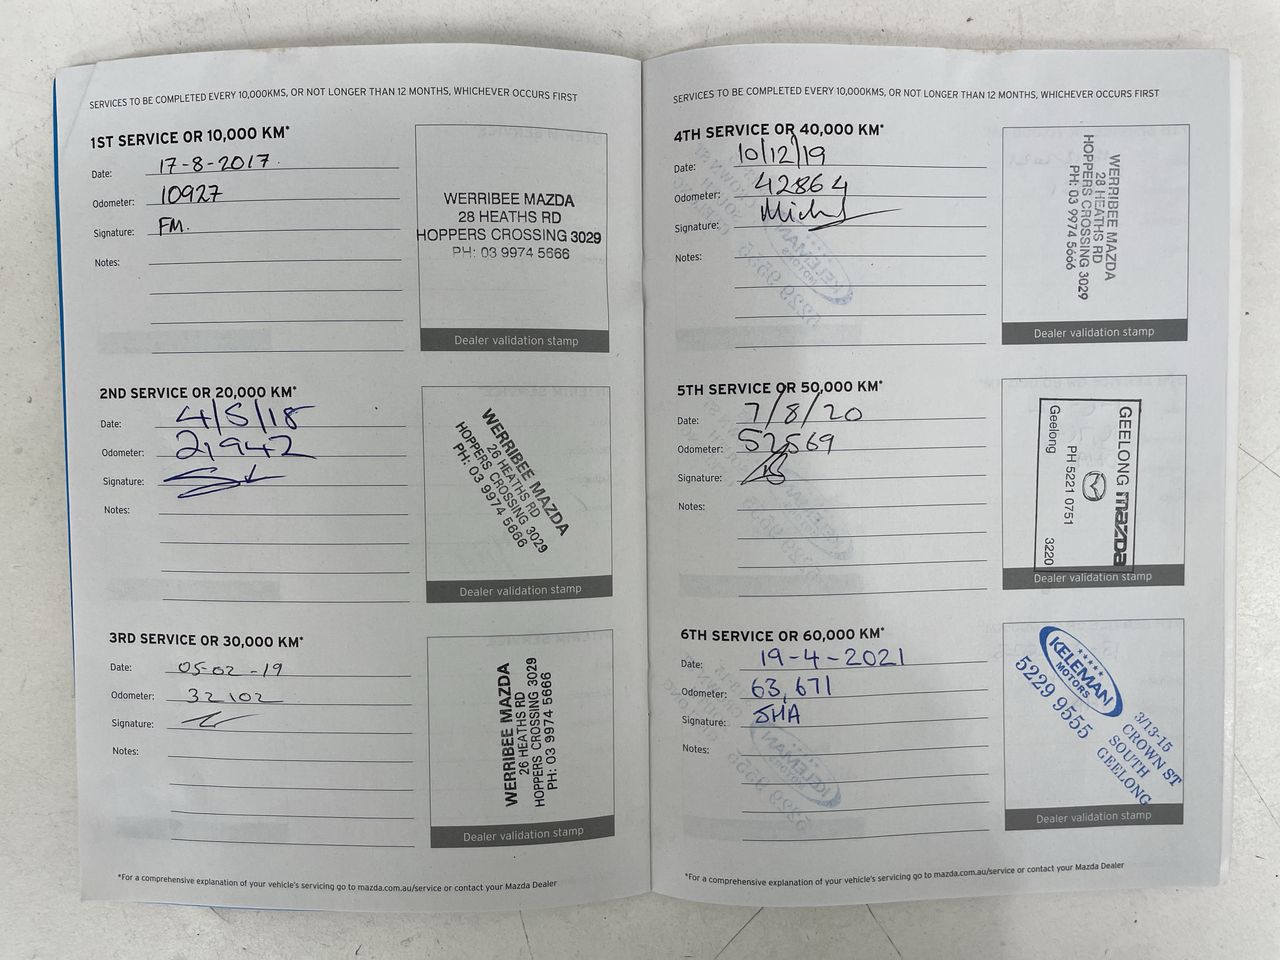 SERVICES TO BE COMPLETED EVERY 10,000KMS, OR NOT LONGER THAN 12 MONTHS, WHICHEVER OCCURS FIRST
1ST SERVICE OR 10,000 KM*
Date: 17-8-2017.
Odometer: 10927
Signature: FM.
Notes:
WERRIBEE MAZDA
28 HEATHS RD
HOPPERS CROSSING 3029
PH: 03 9974 5666
Dealer validation stamp
2ND SERVICE OR 20,000 KM*
Date: 4/5/18
Odometer: 21942
Signature:
Notes:
WERRIBEE MAZDA
26 HEATHS RD
HOPPERS CROSSING 3029
PH: 03 9974 5666
Dealer validation stamp
3RD SERVICE OR 30,000 KM*
Date: 05-02-19
Odometer: 32102
Signature:
Notes:
WERRIBEE MAZDA
26 HEATHS RD
HOPPERS CROSSING 3029
PH: 03 9974 5666
Dealer validation stamp
*For a comprehensive explanation of your vehicle's servicing go to mazda.com.au/service or contact your Mazda Dealer
SERVICES TO BE COMPLETED EVERY 10,000KMS, OR NOT LONGER THAN 12 MONTHS, WHICHEVER OCCURS FIRST
4TH SERVICE OR 40,000 KM*
Date: 10/12/19
Odometer: 42864
Signature:
Notes:
WERRIBEE MAZDA
28 HEATHS RD
HOPPERS CROSSING 3029
PH: 03 9974 5666
Dealer validation stamp
5TH SERVICE OR 50,000 KM*
Date: 7/8/20
Odometer: 52569
Signature:
Notes:
GEELONG mazda
PH 5221 0751
Geelong 3220
Dealer validation stamp
6TH SERVICE OR 60,000 KM*
Date: 19-4-2021
Odometer: 63,671
Signature: SHA
Notes:
KELEMAN
MOTORS
5229 9555
3/13-15
CROWN ST
SOUTH
GEELONG
Dealer validation stamp
*For a comprehensive explanation of your vehicle's servicing go to mazda.com.au/service or contact your Mazda Dealer